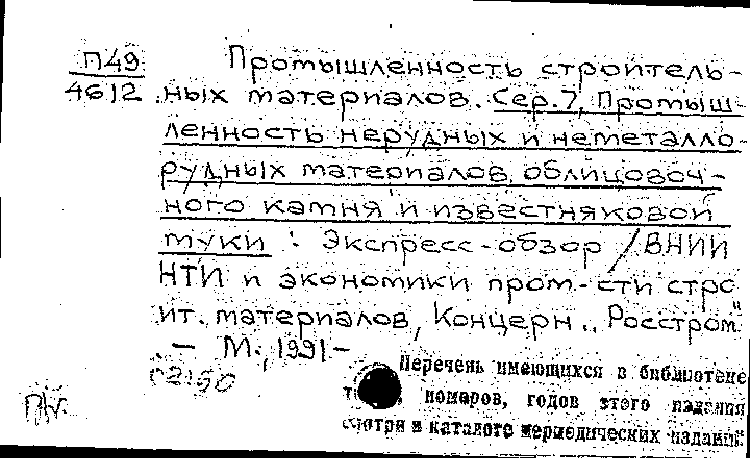 П49 Промышленность строитель-
4612 ных материалов. Сер.7, Промыш-
ленность нерудных и неметалло-
рудных материалов, облицовоч-
ного камня и известняковой
муки : Экспресс-обзор / ВНИИ
НТИ и экономики пром-сти стро-
ит. материалов, Концерн „Росстром"
— М., 1991 —
с 2150
Перечень имеющихся в библиотеке
номеров, годов этого издания
смотри в каталоге периодических изданий